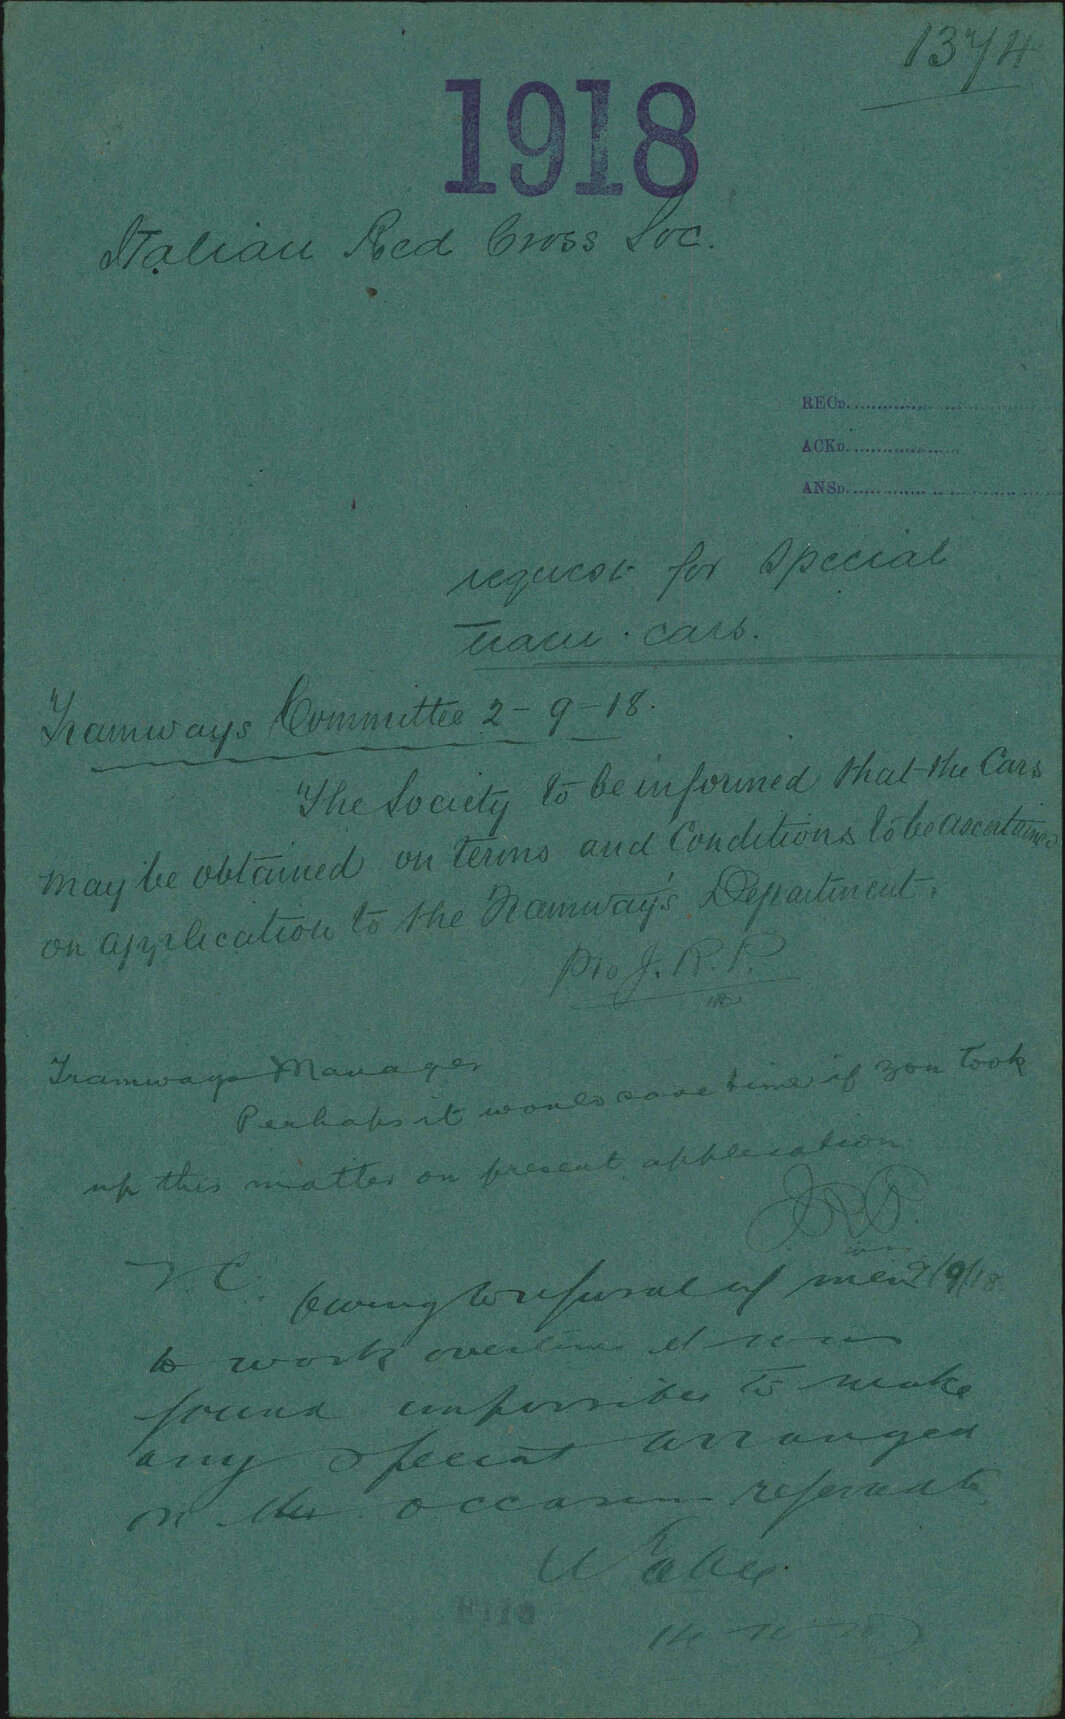 1374
1918
Italian Red Cross Soc.
RECD.
ACKD.
ANSD.
request for special
Tram cars.
Tramways Committee 2-9-18.
The Society to be informed that the Cars
may be obtained on terms and Conditions to be ascertained
on application to the Tramway's Department.
Pro J.R.P.
Tramways Manager
Perhaps it would save time if you took
up this matter on present application
JRP.
2/9/18
T.C. Owing to refusal of men
to work overtime it was
found impossible to make
any special arranged
on the occasion referred to